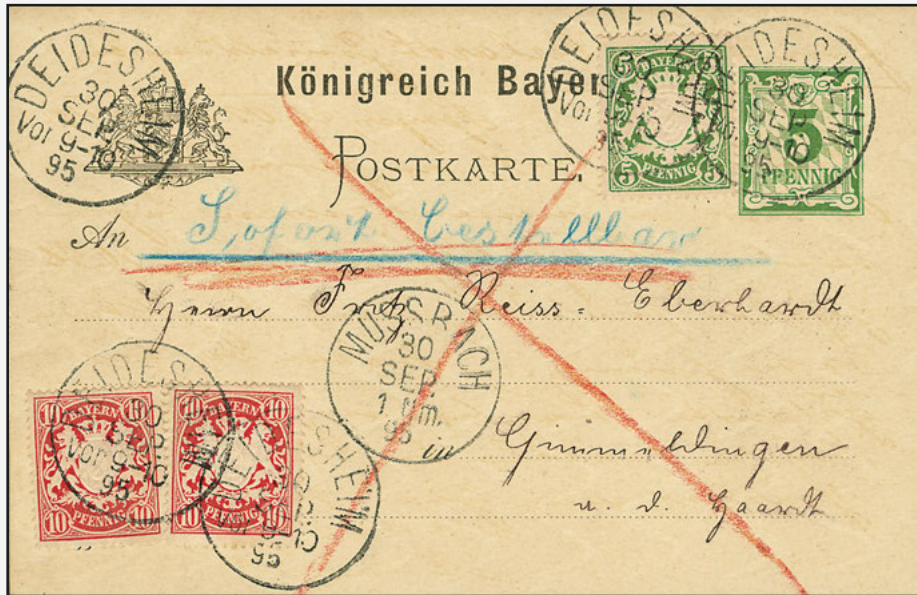 DEIDESHEIM
30
SEP
Vor 9-10
95
Königreich Bayer
POSTKARTE.
DEIDESHEIM
30
SEP
Vor 9-10
95
BAYERN
5 5
5 PFENNIG 5
DEIDESHEIM
30
SEP
9-10
95
5
PFENNIG
An
Sofort bestellbar
Herrn Fritz Reiss-Eberhardt
MUSSBACH
30
SEP.
1 Nm.
95
in Gimmeldingen
a. d. Haardt
DEIDESHEIM
30
SEP
Vor 9-10
95
10 BAYERN 10
10 PFENNIG 10
10 BAYERN 10
10 PFENNIG 10
DEIDESHEIM
30
SEP
Vor 9-10
95